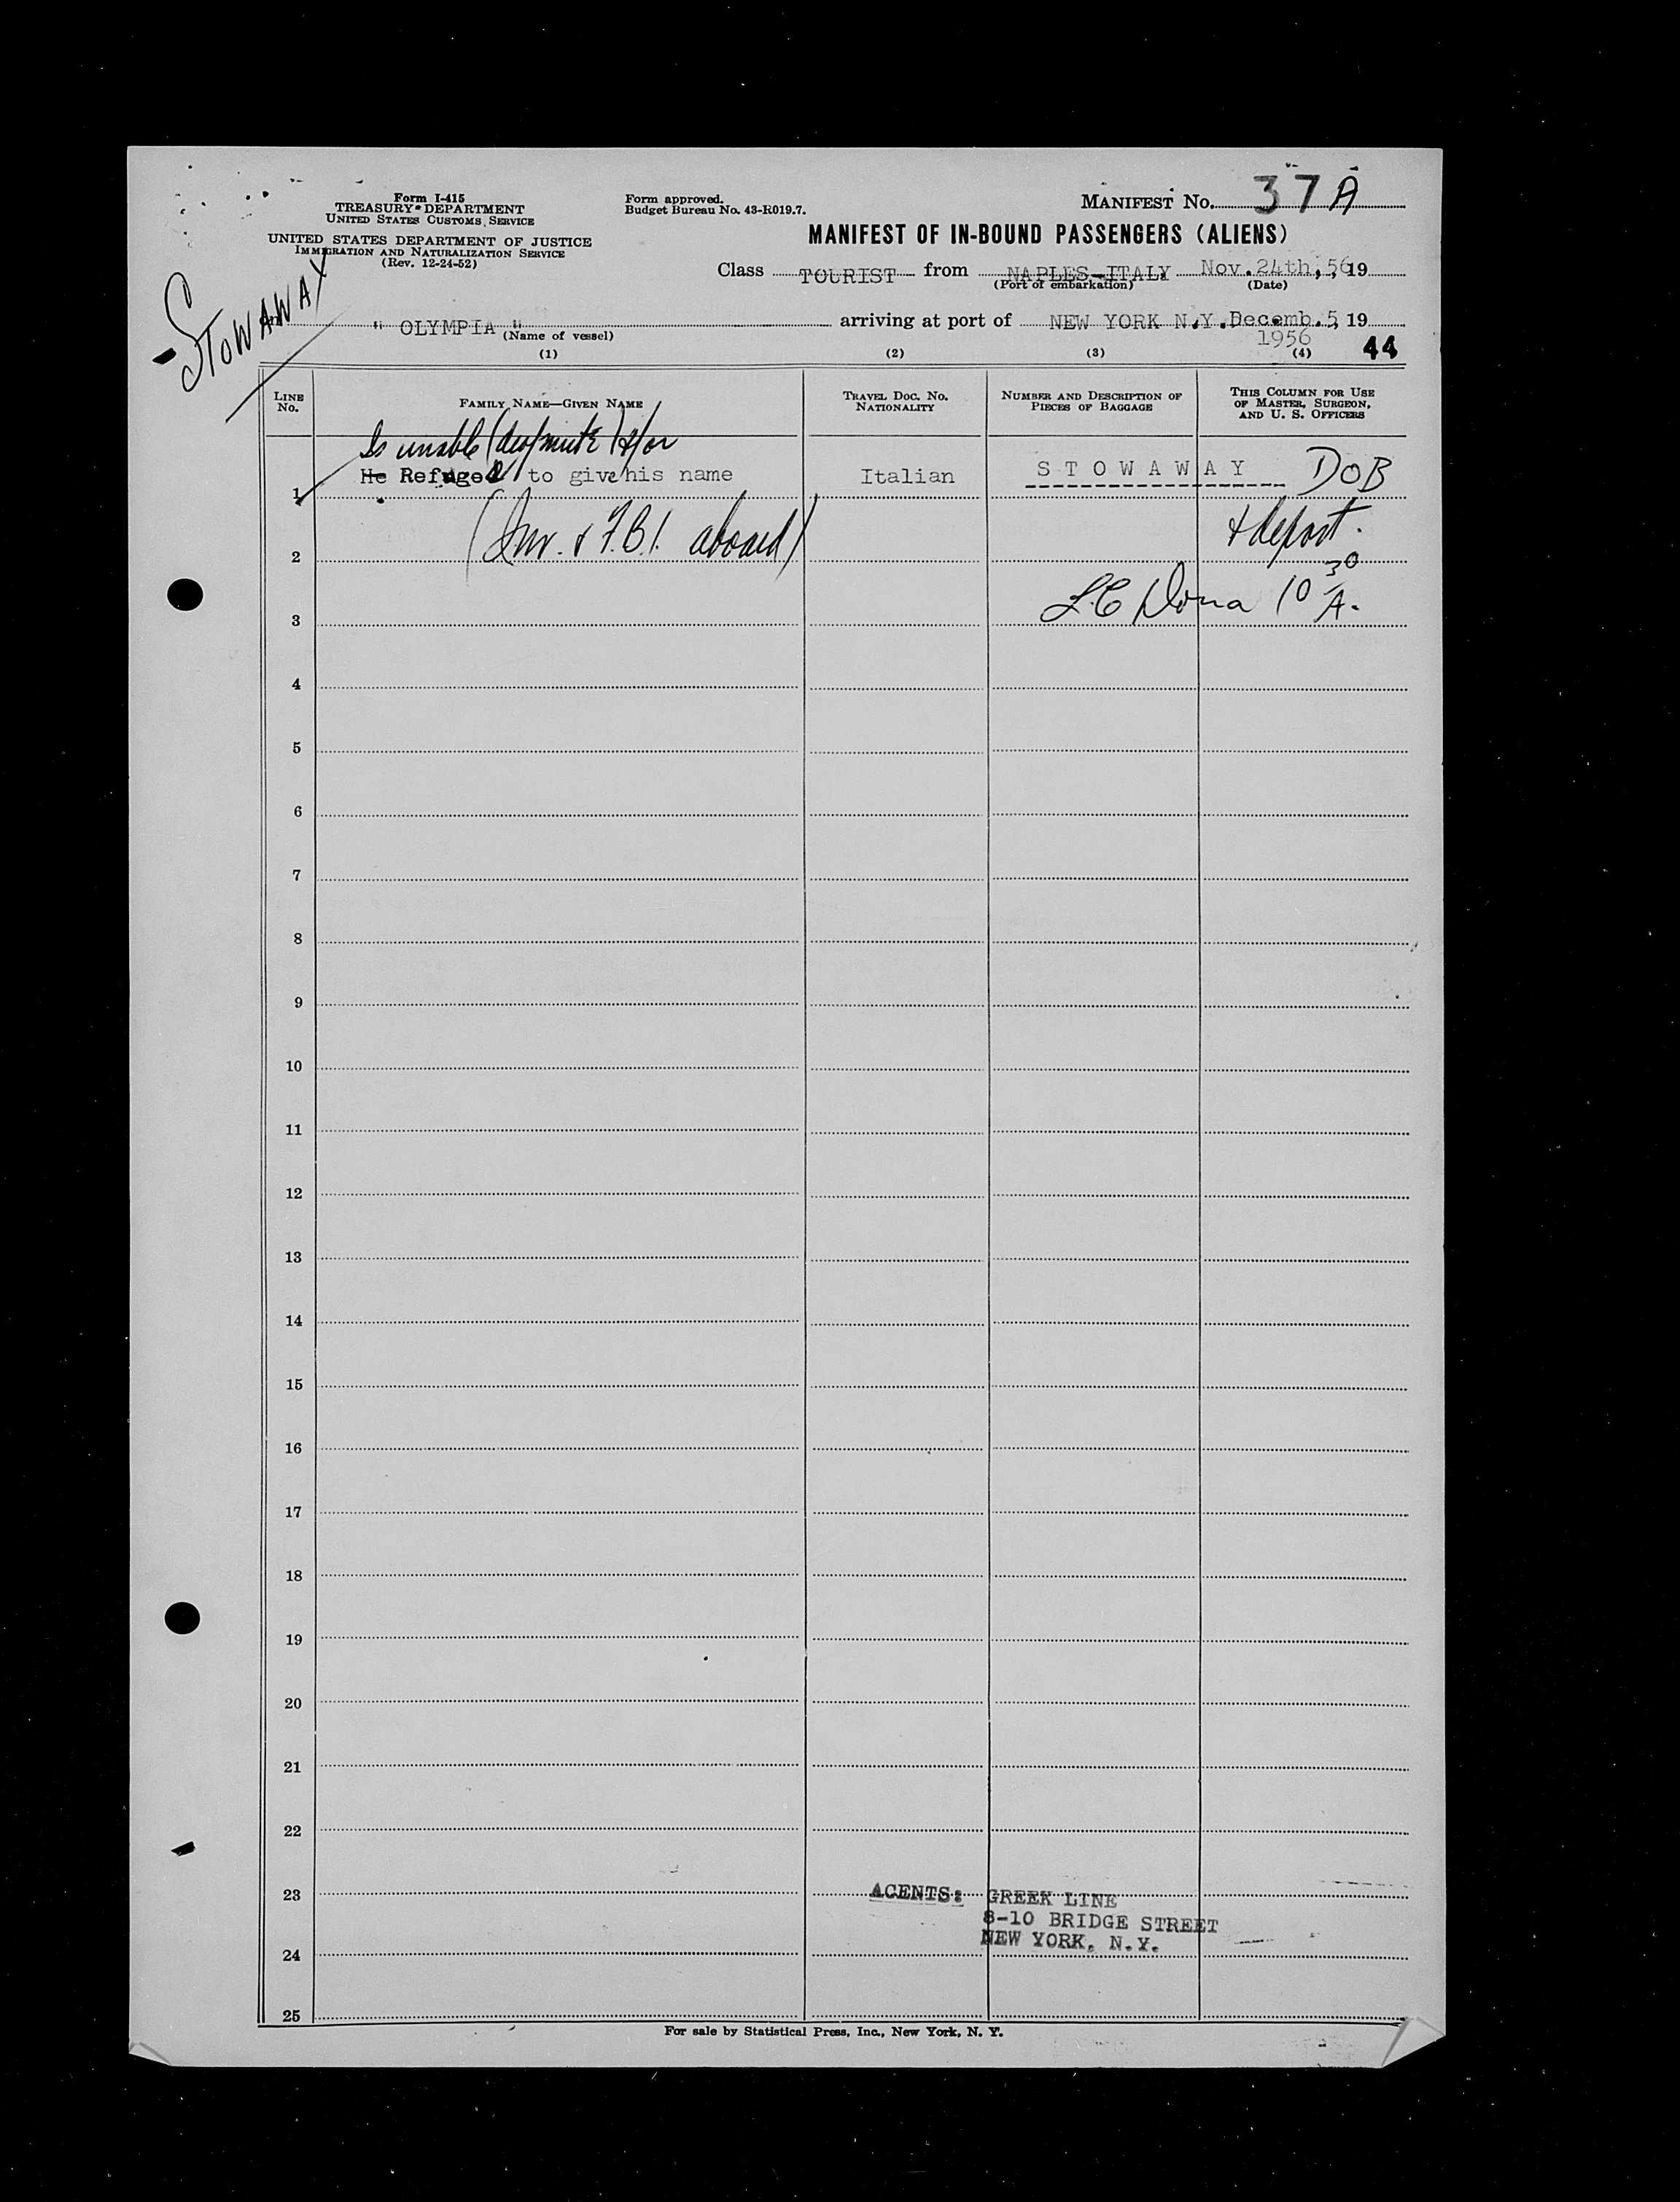 Form I-415
TREASURY DEPARTMENT
UNITED STATES CUSTOMS SERVICE
UNITED STATES DEPARTMENT OF JUSTICE
IMMIGRATION AND NATURALIZATION SERVICE
(Rev. 12-24-52)
Form approved.
Budget Bureau No. 43-R019.7.
MANIFEST No. 37A
MANIFEST OF IN-BOUND PASSENGERS (ALIENS)
Class TOURIST from NAPLES-ITALY Nov.24th, 56, 19
(Port of embarkation) (Date)
STOWAWAY
on " OLYMPIA " arriving at port of NEW YORK N.Y. Decemb. 5, 19
(Name of vessel) 1956
(1) (2) (3) (4) 44
LINE No. FAMILY NAME—GIVEN NAME TRAVEL DOC. No. NATIONALITY NUMBER AND DESCRIPTION OF PIECES OF BAGGAGE THIS COLUMN FOR USE OF MASTER, SURGEON, AND U. S. OFFICERS
Is unable (deaf mute) &/or
1 He Refuged to give his name Italian STOWAWAY DOB
(Inv. & F.B.I. aboard) & deport.
2
3 10 30 A.
4
5
6
7
8
9
10
11
12
13
14
15
16
17
18
19
20
21
22
23 AGENTS: GREEK LINE
8-10 BRIDGE STREET
24 NEW YORK, N.Y.
25
For sale by Statistical Press, Inc., New York, N. Y.